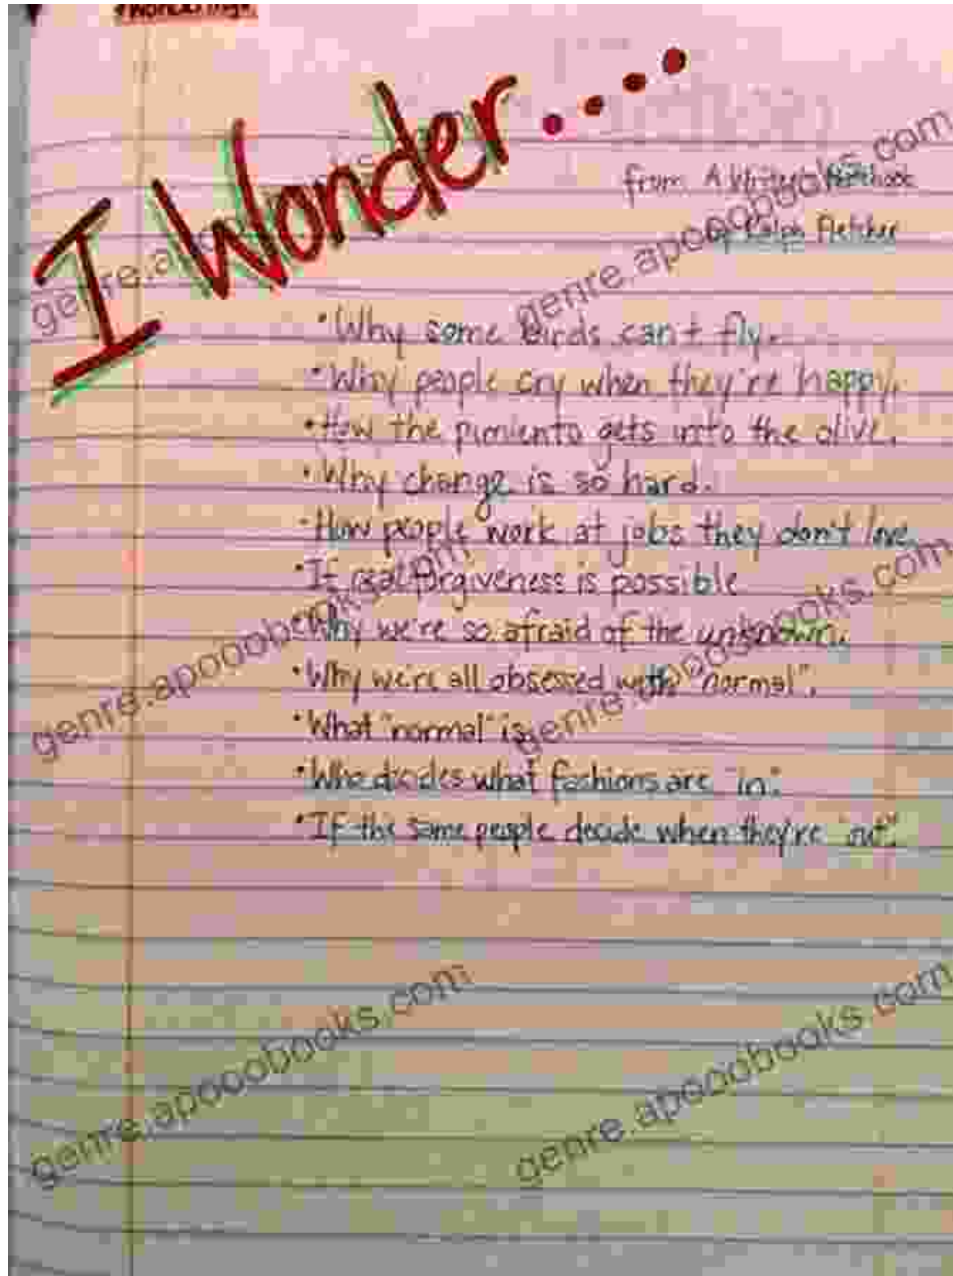 Wonderings
I Wonder....
from A Writer's Notebook
by Ralph Fletcher
• Why some birds can't fly.
• Why people cry when they're happy.
• How the pimiento gets into the olive.
• Why change is so hard.
• How people work at jobs they don't love.
• If real forgiveness is possible
• Why we're so afraid of the unknown.
• Why we're all obsessed with "normal".
• What "normal" is.
• Who decides what fashions are "in".
• If the same people decide when they're "out".
genre.apooobooks.com
genre.apooobooks.com
genre.apooobooks.com
genre.apooobooks.com
genre.apooobooks.com
genre.apooobooks.com